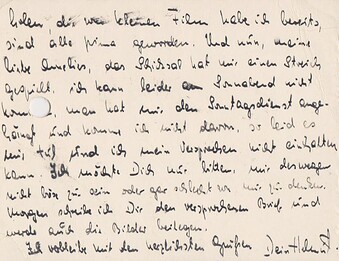 holen, die vom kleinen Film habe ich bereits,
sind alle prima geworden. Und nun, meine
liebe Annelies, das Schicksal hat mir einen Streich
gespielt, ich kann leider am Sonnabend nicht
kommen, man hat mir den Sonntagsdienst ange-
hängt und komme ich nicht davon, so leid es
mir tut und ich mein Versprechen nicht einhalten
kann. Ich möchte Dich nur bitten, mir deswegen
nicht bös zu sein oder gar schlecht von mir zu denken.
Morgen schreibe ich Dir den versprochenen Brief und
werde auch die Bilder beilegen.
Ich verbleibe mit den herzlichsten Grüßen Dein Helmut.